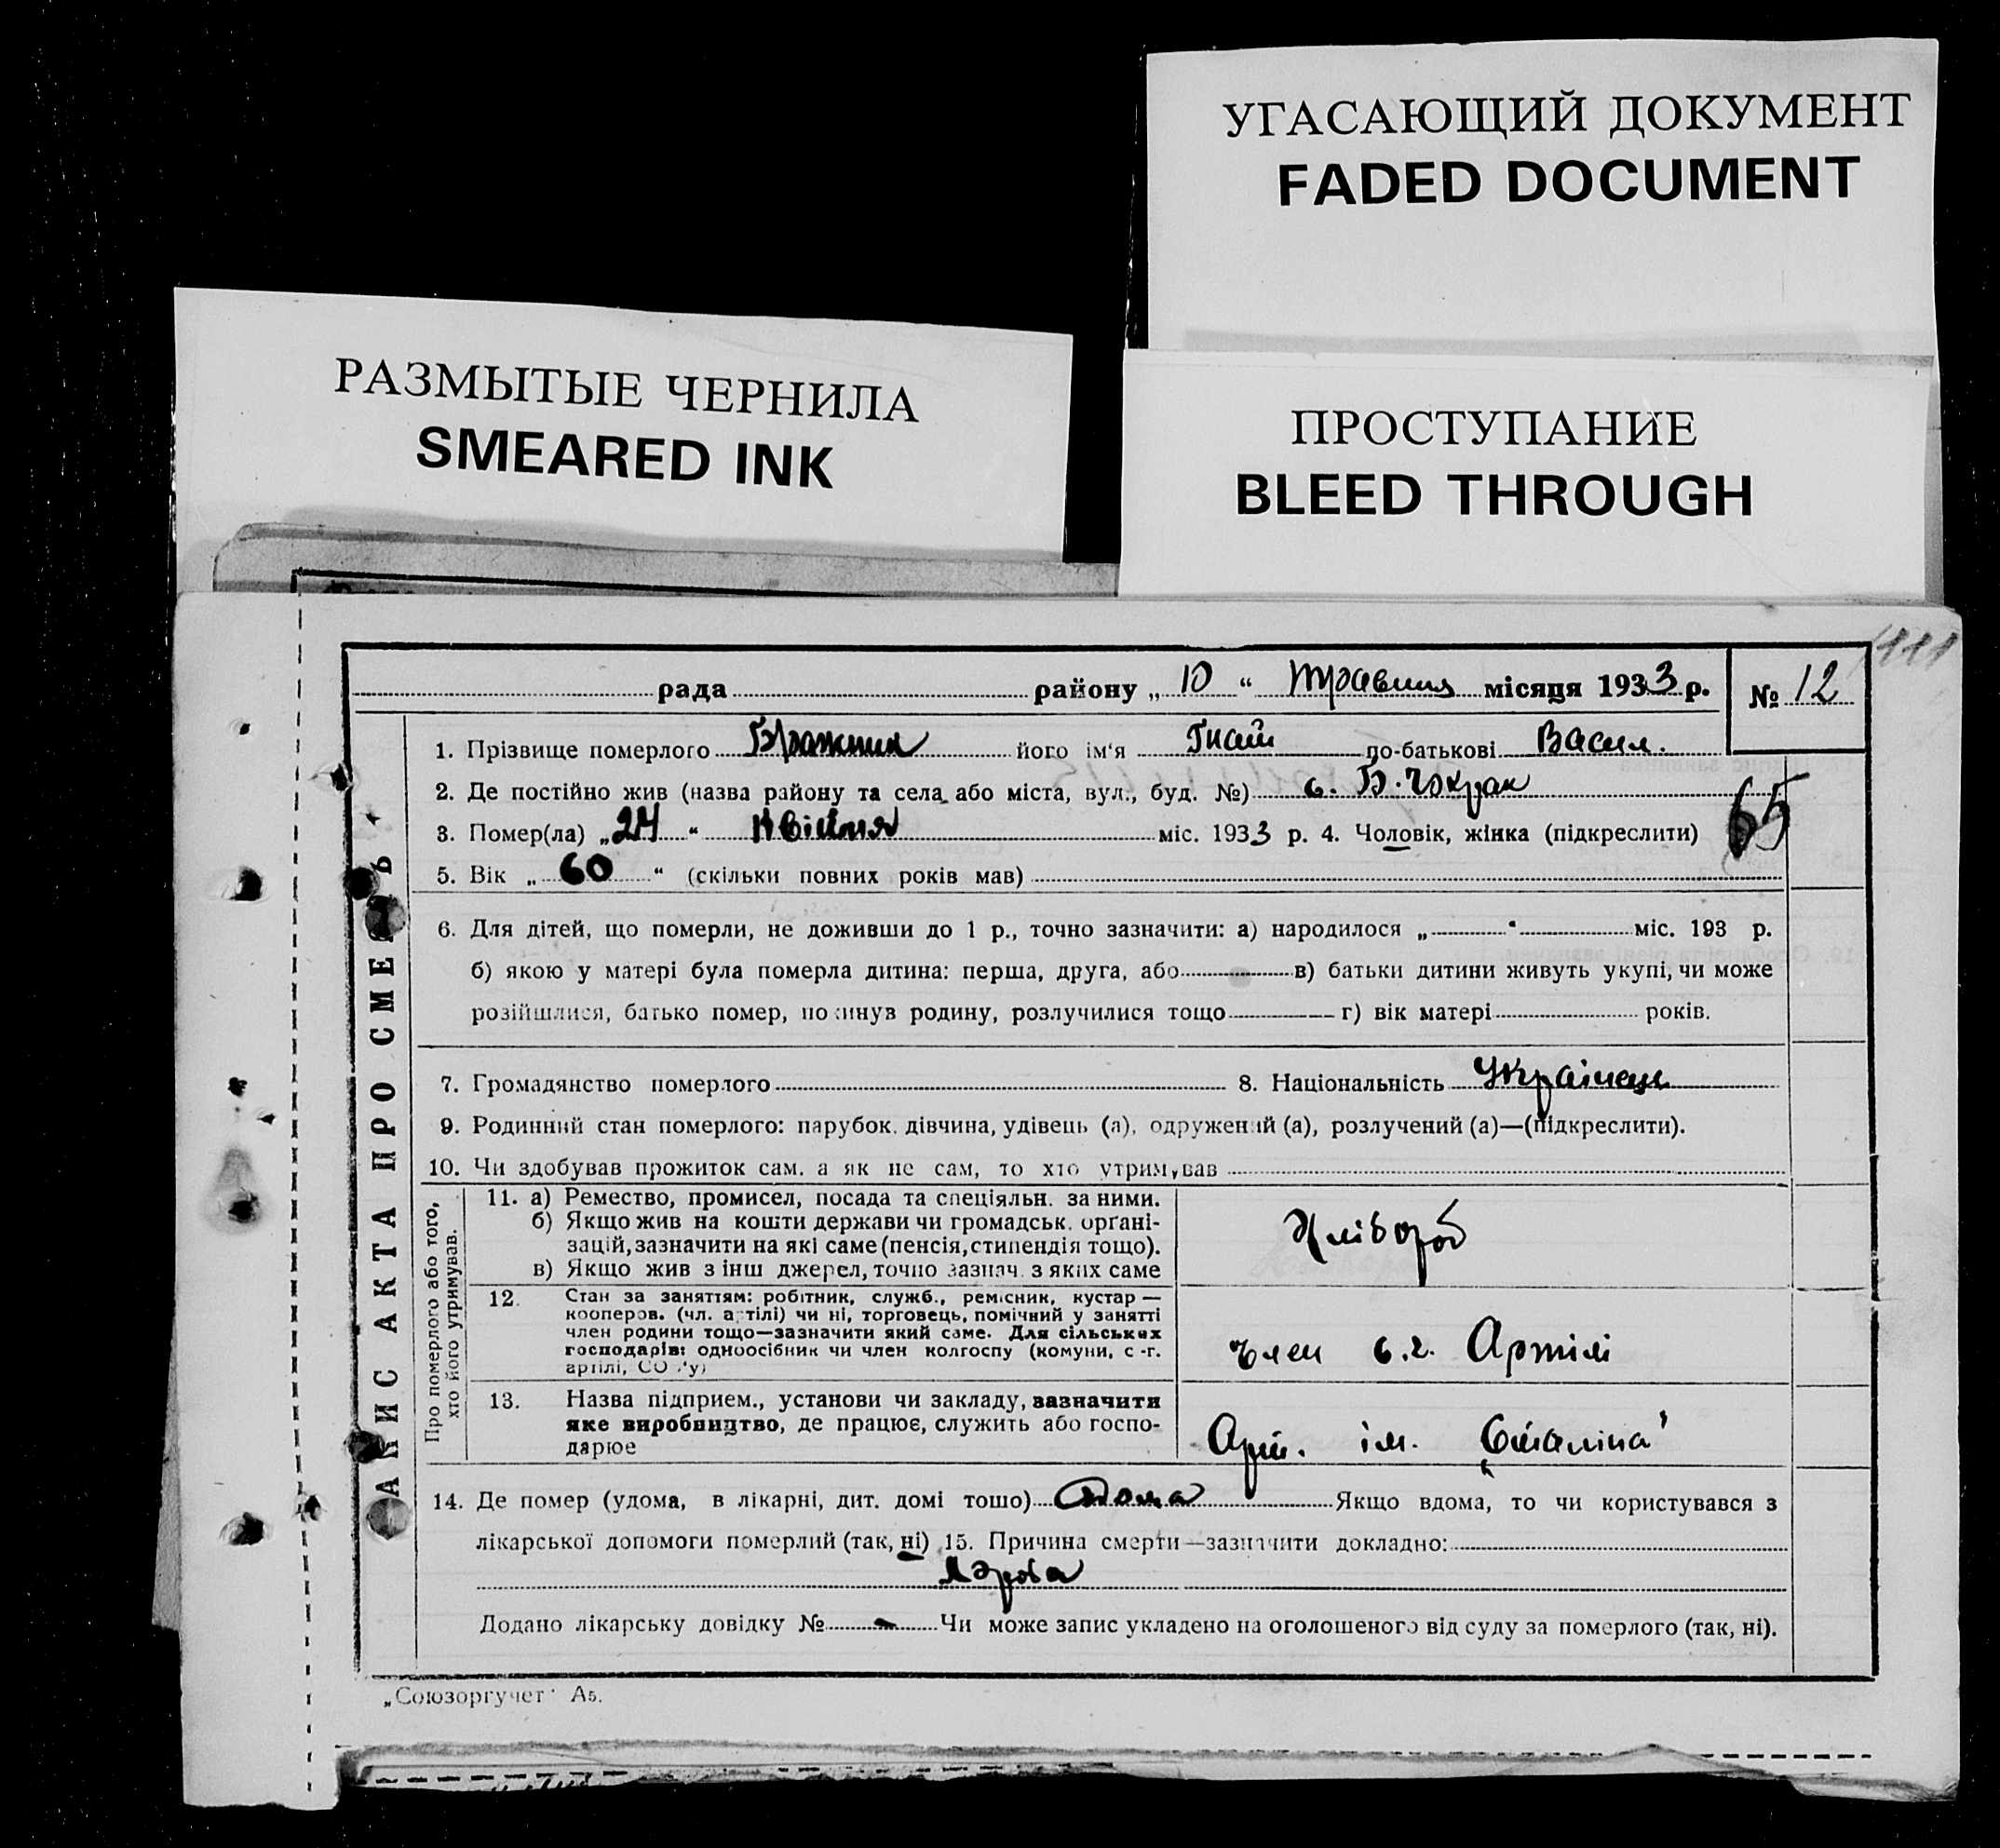 УГАСАЮЩИЙ ДОКУМЕНТ
FADED DOCUMENT
РАЗМЫТЫЕ ЧЕРНИЛА
SMEARED INK
ПРОСТУПАНИЕ
BLEED THROUGH
111
рада района „ 10 “ травня місяця 1933 р.
№ 12
ЗАПИС АКТА ПРО СМЕРТЬ
1. Прізвище померлого Бражник його ім'я Гнат по-батькові Васил.
2. Де постійно жив (назва району та села або міста, вул., буд. №) с. Б. Чокрак
3. Помер(ла) „24“ Квітня міс. 1933 р. 4. Чоловік, жінка (підкреслити)
65
5. Вік „60“ (скільки повних років мав)
6. Для дітей, що померли, не доживши до 1 р., точно зазначити: а) народилося „ “ міс. 193 р.
б) якою у матері була померла дитина: перша, друга, або в) батьки дитини живуть укупі, чи може
розійшлися, батько помер, покинув родину, розлучилися тощо г) вік матері років.
7. Громадянство померлого 8. Національність Українець
9. Родинний стан померлого: парубок, дівчина, удівець (а), одружений (а), розлучений (а)—(підкреслити).
10. Чи здобував прожиток сам, а як не сам, то хто утримував
Про померлого або того, хто його утримував.
11. а) Ремество, промисел, посада та спеціяльн. за ними.
б) Якщо жив на кошти держави чи громадськ. органі-
зацій, зазначити на які саме (пенсія, стипендія тощо).
в) Якщо жив з інш джерел, точно зазнач. з яких саме
Хлібороб
12. Стан за заняттям: робітник, служб., ремісник, кустар —
кооперов. (чл. артілі) чи ні, торговець, помічний у занятті
член родини тощо—зазначити який саме. Для сільських
господарів: одноосібник чи член колгоспу (комуни, с.-г.
артілі, СОЗ'у)
Член с.г. Артілі
13. Назва підприєм., установи чи закладу, зазначити
яке виробництво, де працює, служить або госпо-
дарює
Арт. ім. „Сталіна“
14. Де помер (удома, в лікарні, дит. домі тощо) дома Якщо вдома, то чи користувався з
лікарської допомоги померлий (так, ні) 15. Причина смерти—зазначити докладно:
Додано лікарську довідку № - Чи може запис укладено на оголошеного від суду за померлого (так, ні).
„Союзоргучет“ А5.